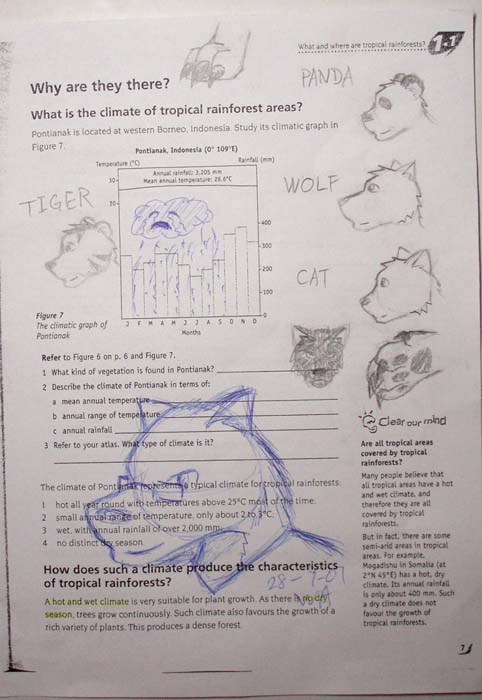 What and where are tropical rainforests? 1.1
PANDA
Why are they there?
What is the climate of tropical rainforest areas?
Pontianak is located at western Borneo, Indonesia. Study its climatic graph in
Figure 7.
Pontianak, Indonesia (0° 109°E)
Temperature (°C)
Rainfall (mm)
Annual rainfall: 3,205 mm
Mean annual temperature: 26.6°C
30
20
400
300
200
100
0
J F M A M J J A S O N D
Months
TIGER
WOLF
CAT
Figure 7
The climatic graph of
Pontianak
Refer to Figure 6 on p. 6 and Figure 7.
1 What kind of vegetation is found in Pontianak?
2 Describe the climate of Pontianak in terms of:
a mean annual temperature
b annual range of temperature
c annual rainfall
3 Refer to your atlas. What type of climate is it?
The climate of Pontianak represents a typical climate for tropical rainforests:
1 hot all year round with temperatures above 25°C most of the time.
2 small annual range of temperature, only about 2 to 3°C.
3 wet, with annual rainfall of over 2,000 mm.
4 no distinct dry season.
How does such a climate produce the characteristics
of tropical rainforests?
A hot and wet climate is very suitable for plant growth. As there is no dry
season, trees grow continuously. Such climate also favours the growth of a
rich variety of plants. This produces a dense forest.
Clear our mind
Are all tropical areas
covered by tropical
rainforests?
Many people believe that
all tropical areas have a hot
and wet climate, and
therefore they are all
covered by tropical
rainforests.
But in fact, there are some
semi-arid areas in tropical
areas. For example,
Mogadishu in Somalia (at
2°N 45°E) has a hot, dry
climate. Its annual rainfall
is only about 400 mm. Such
a dry climate does not
favour the growth of
tropical rainforests.
7